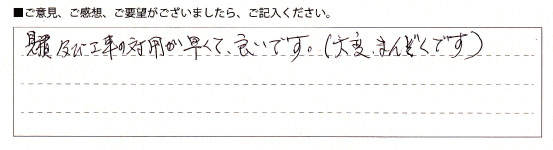 ■ご意見、ご感想、ご要望がございましたら、ご記入ください。
見積及び工事の対用が早くて、良いです。(大変まんぞくです)